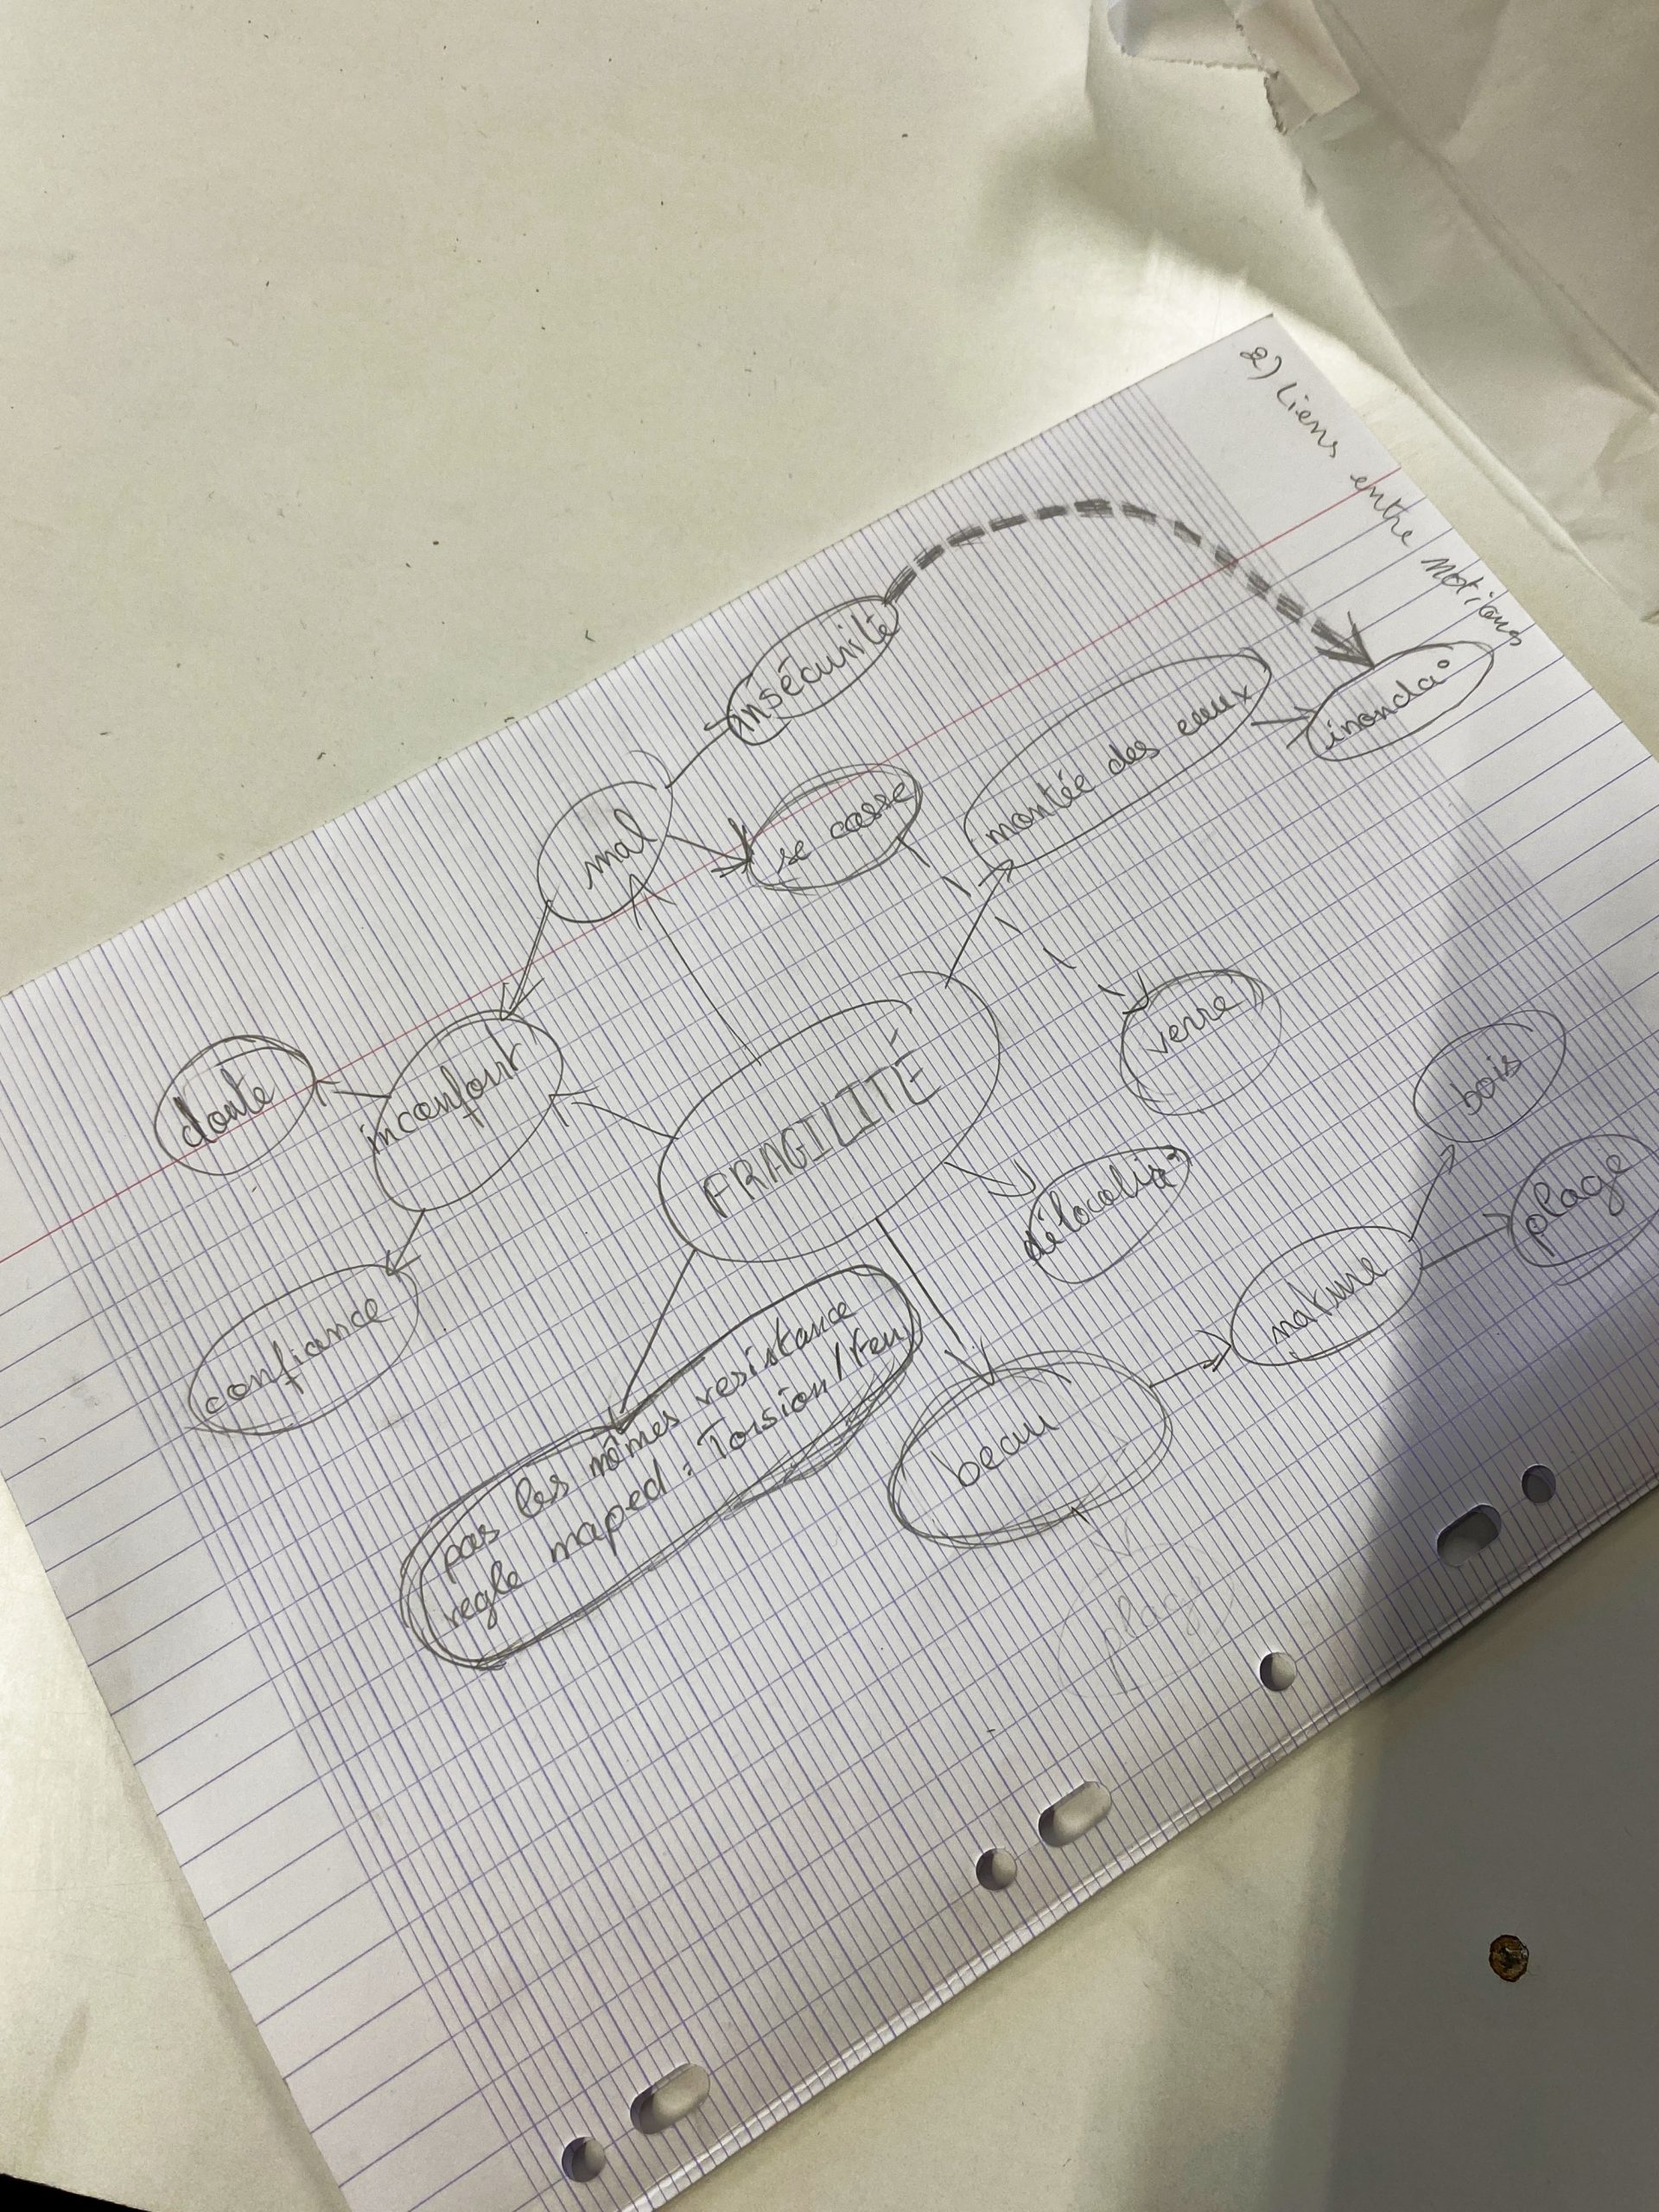 2) Liens entre notions
insécurité
inonda°
montée des eaux
mal
se casse
verre
bois
doute
inconfort
FRAGILITÉ
délocalisa°
nature
plage
confiance
pas les mêmes resistance
regle maped = Torsion/feu
beau
plage